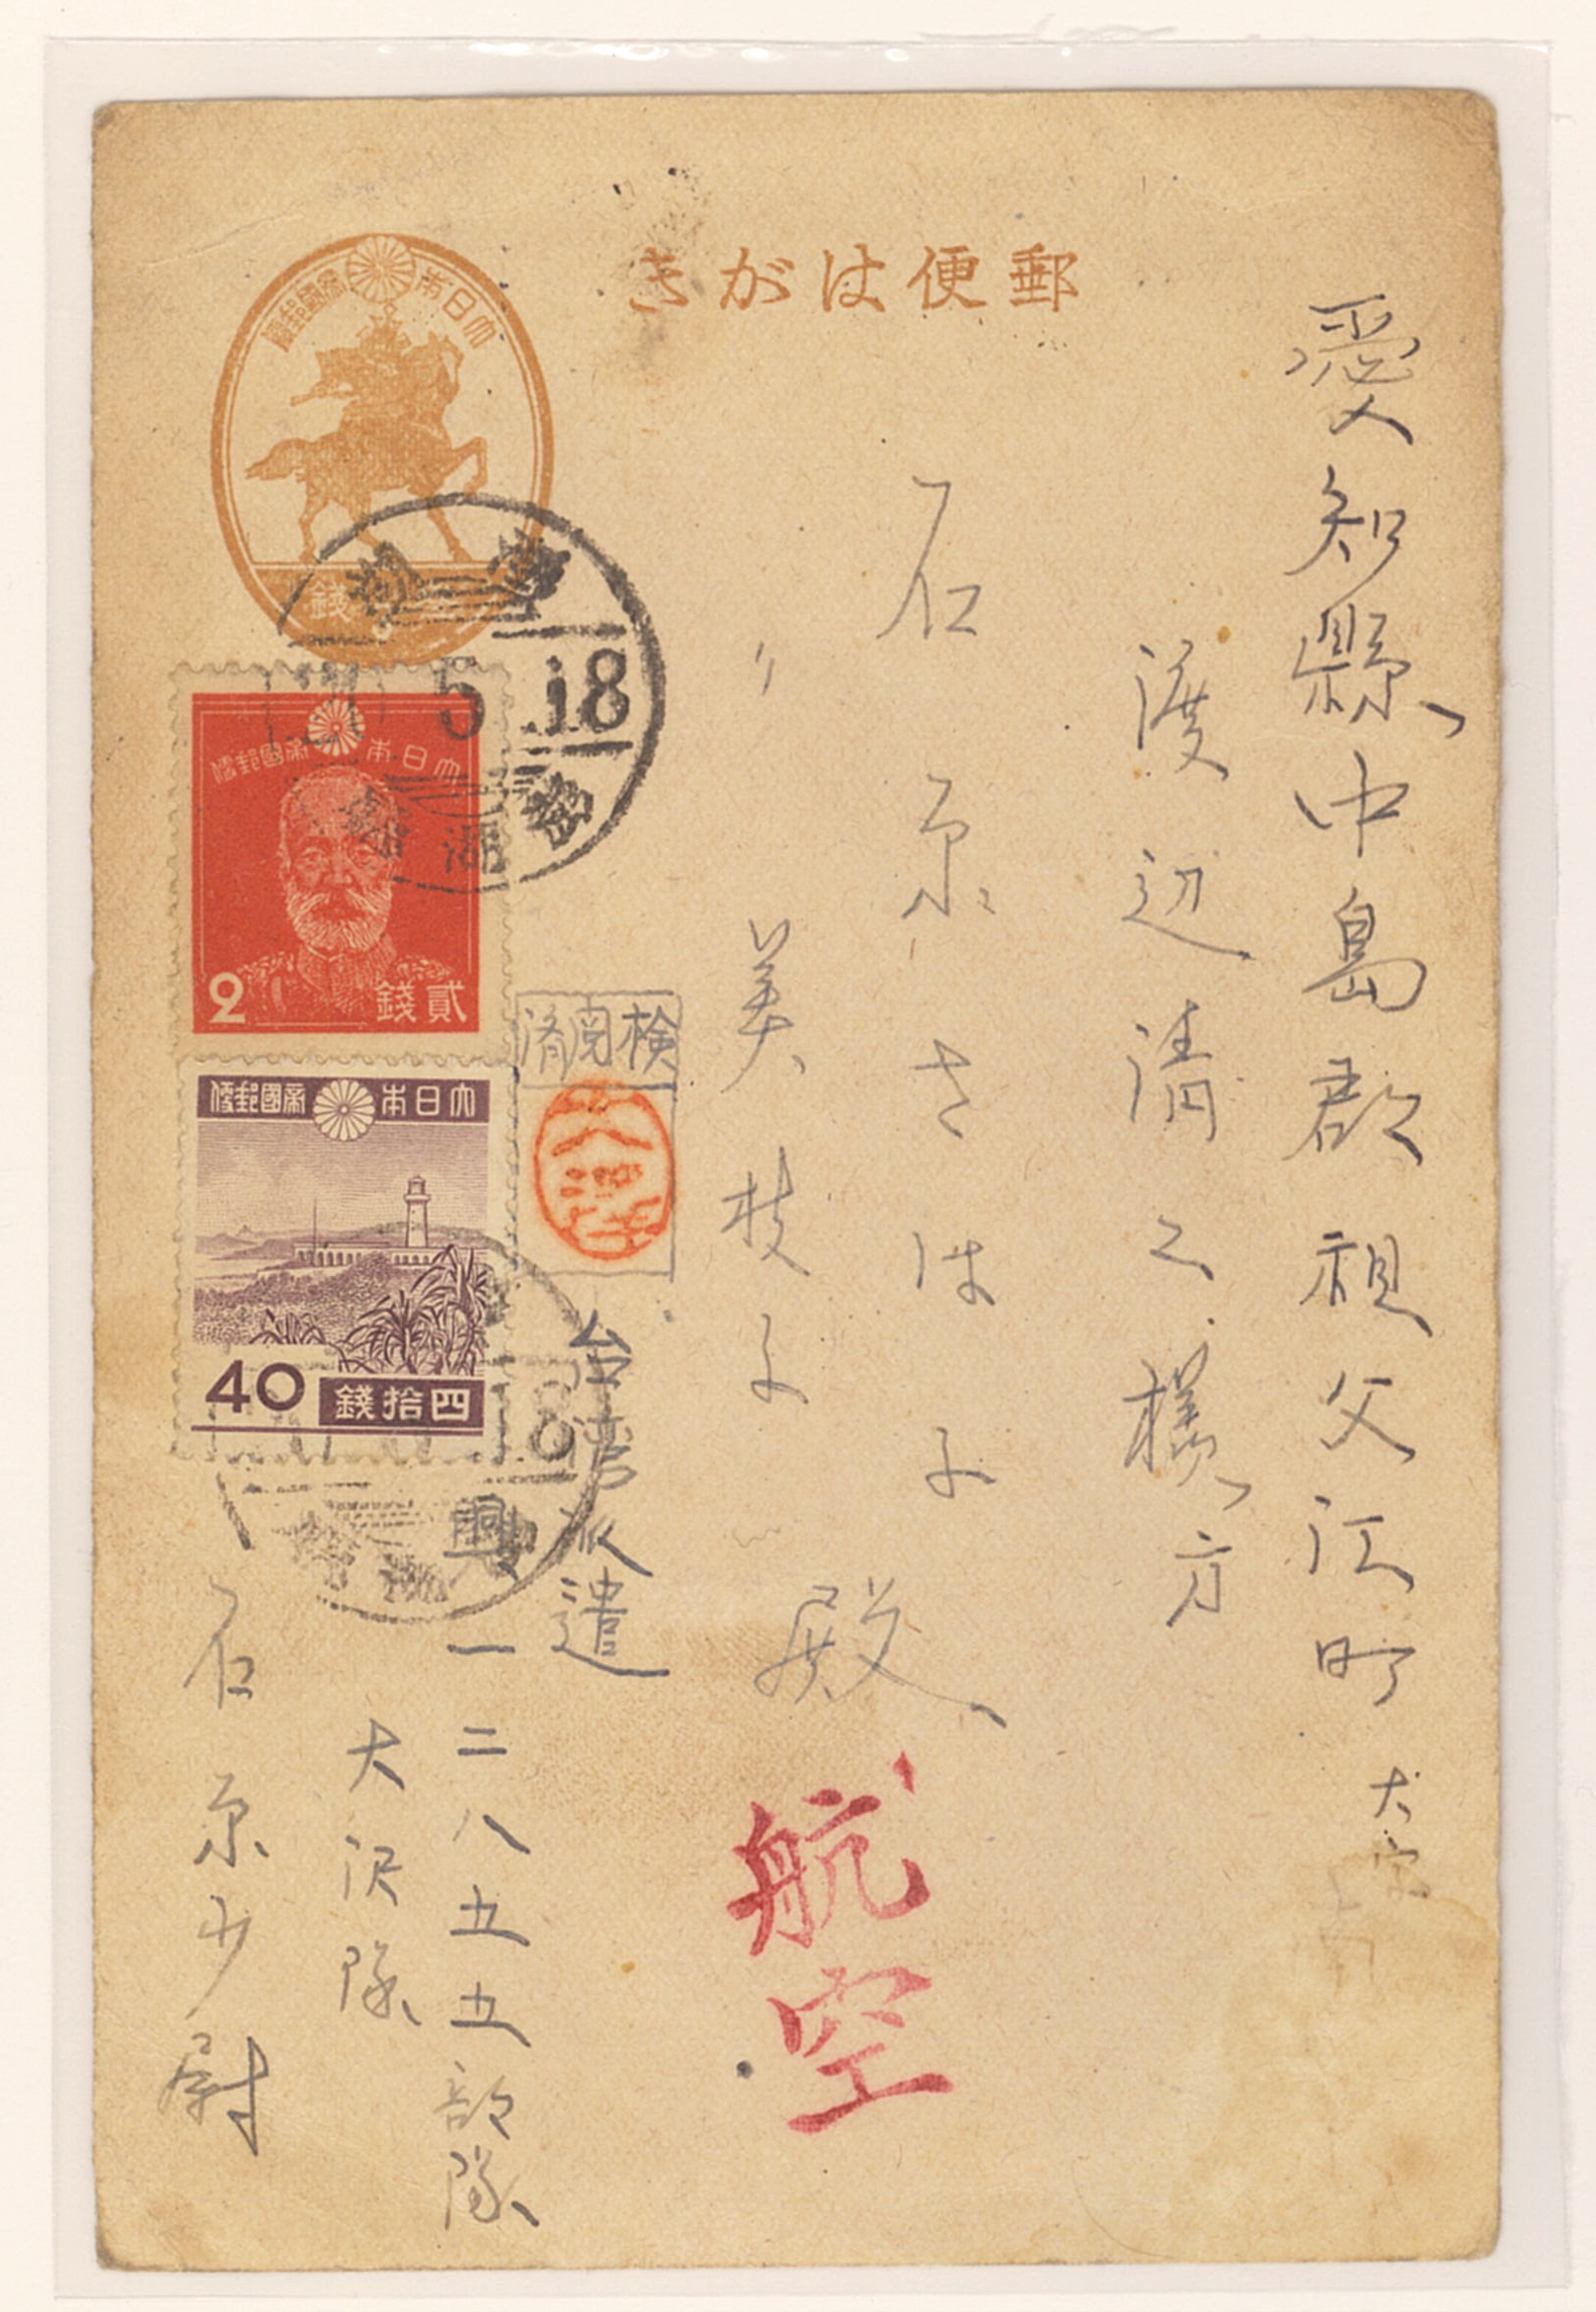 郵便はがき
大日本帝國郵便
錢
愛知縣中島郡祖父江町大字
渡辺清之様方
石原きはよ
〃美枝子
殿
航空
20 5 18
大日本帝國郵便
2 貳錢
大日本帝國郵便
40 四拾錢
検閲済
大沢
台湾派遣
興一二八五五部隊
大沢隊
石原少尉